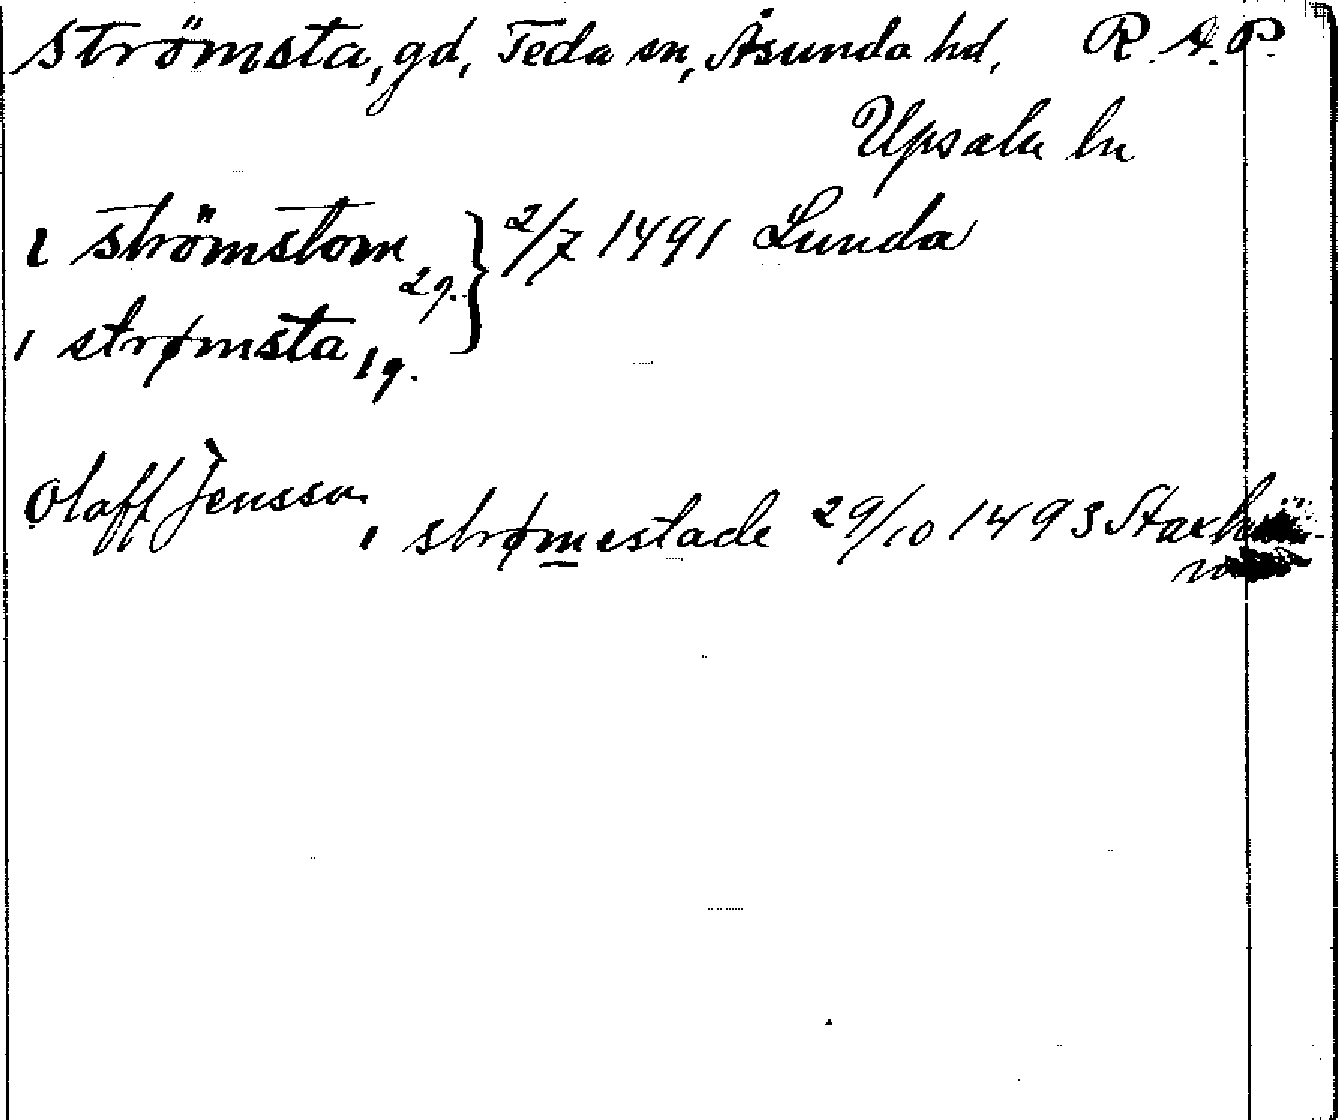 Strömsta, gd, Teda sn, Åsunda hd, R.A.P.
Upsala ln
i strömstom 2g. } 2/7 1491 Lunda
i strømsta 1g.
Olaff Jensson i strømestade 29/10 1493